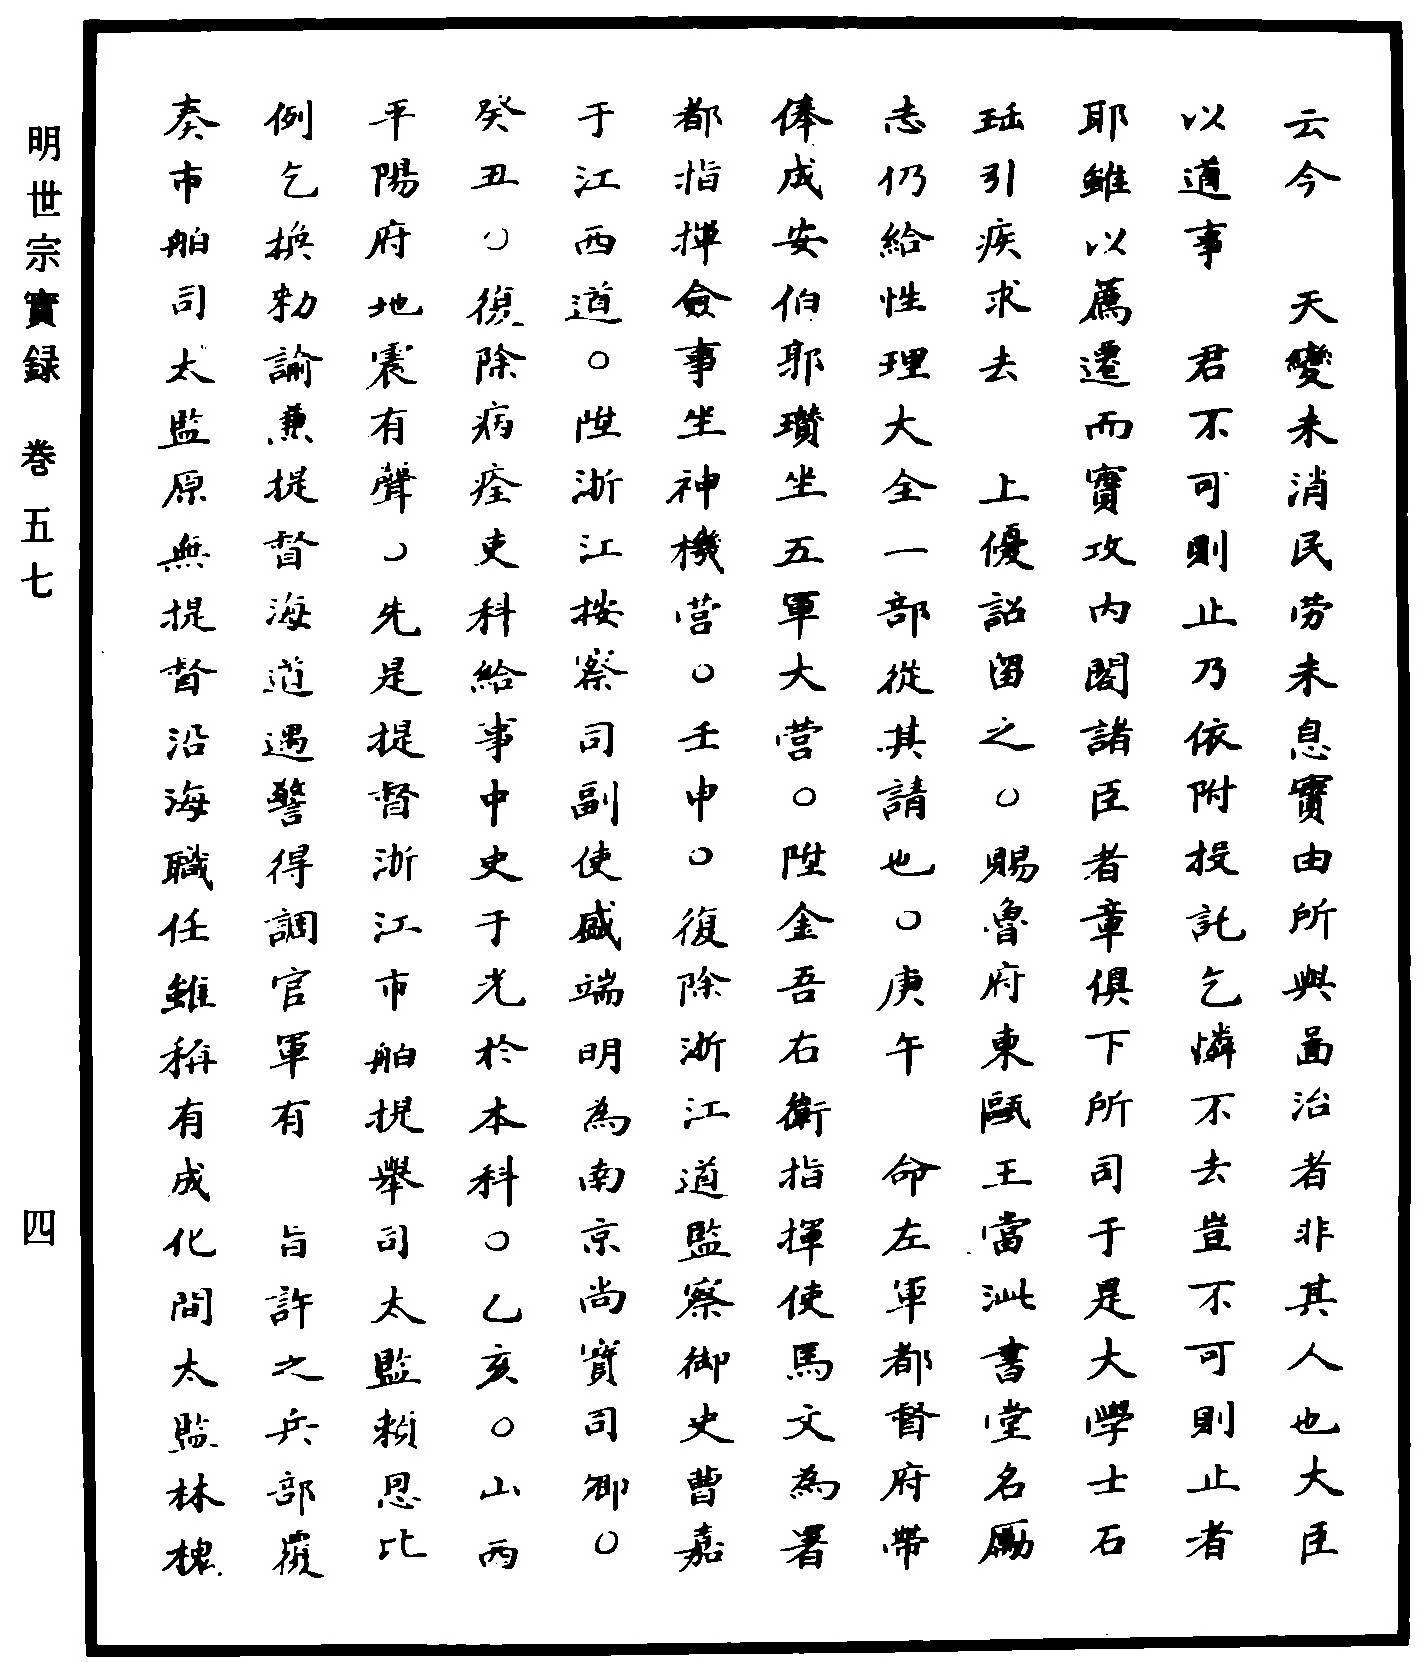 云今　天變未消民劳未息實由所與啚治者非其人也大臣
以道事　君不可則止乃依附投託乞憐不去豈不可則止者
耶雖以薦遷而實攻內閣諸臣者章俱下所司于是大學士石
珤引疾求去　上優詔留之○賜魯府東甌王當沘書堂名勵
志仍給性理大全一部從其請也○庚午　命左軍都督府帶
俸成安伯郭瓚坐五軍大营○陞金吾右衛指揮使馬文為署
都指揮僉事坐神機营○壬申○復除浙江道監察御史曹嘉
于江西道○陞浙江按察司副使盛端明為南京尚寶司卿○
癸丑○復除病痊吏科給事中史于光於本科○乙亥○山西
平陽府地震有聲○先是提督浙江市舶提舉司太監賴恩比
例乞換勑諭兼提督海道遇警得調官軍有　旨許之兵部覆
奏市舶司太監原無提督沿海職任雖稱有成化間太監林槐
明世宗實録　卷五七　四